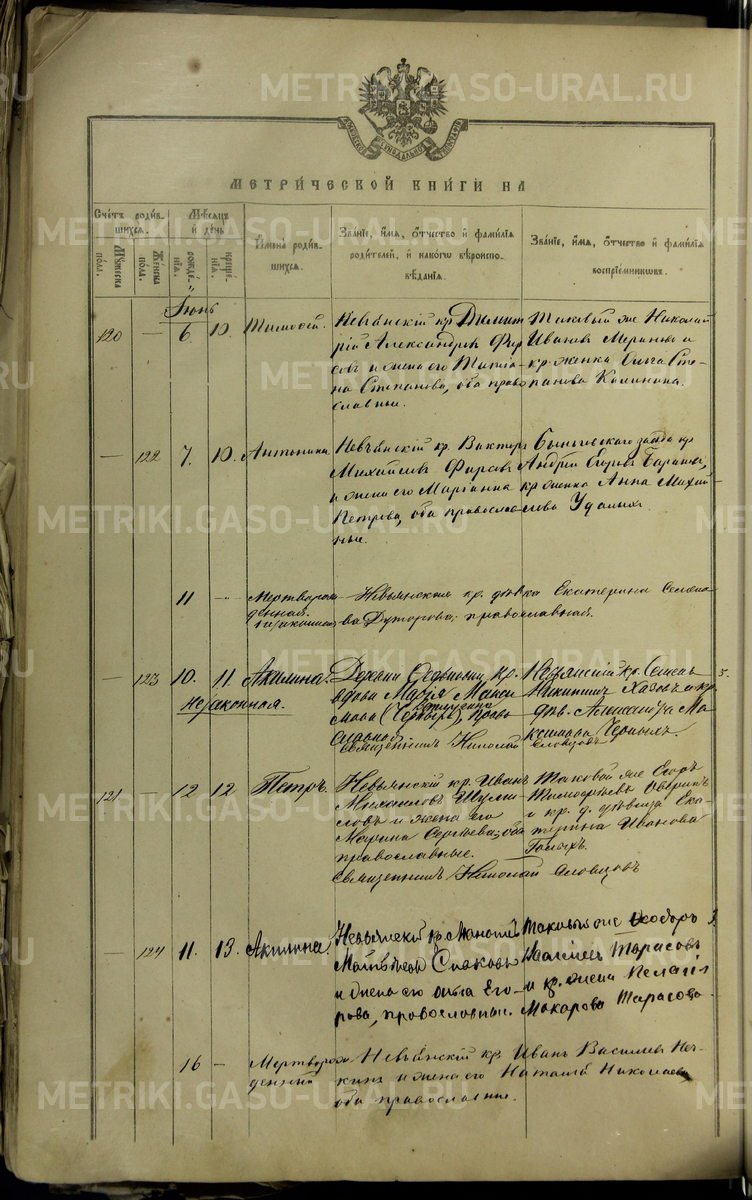 METRIKI.GASO-URAL.RU
МЕТРИ́ЧЕСКОЙ КНИ́ГИ НА
Счетъ роди́вшихся.
Му́жеска пола.
Же́нска пола.
Мѣсяцъ и де́нь
рожде́нія.
креще́нія.
Имена́ роди́вшихся.
Зва́ніе, и́мя, о́тчество и фами́лія родителей, и како́гѡ вѣроисповѣ́данія.
Зва́ніе, и́мя, о́тчество и фами́лія воспріе́мниковъ.
Іюнь
120 — 6. 10. Тимофей.
Невьянскій кр. Димит
рій Александровъ Фир
совъ и жена его Татіа-
на Степанова, оба право
славные.
Таковый же Николай
Ивановъ и
кр. женка Ольга Сте-
панова Калинина.
— 122 7. 10. Антонина
Невьянскій кр. Викторъ
Михайловъ Фирсовъ
и жена его Маріанна
Петрова, оба православ
ные.
Быньговскаго завода кр
Андрей Егоровъ
кр женка Анна Михай-
лова Удалыхъ
11 — Мертворож
денная
незаконная
Невьянская кр. дѣвка Екатерина Семено
ва православная.
— 123 10. 11. Акилина.
незаконная.
кр.
вдова Марія Макси
мова Право
славная
Священникъ Николай Словцовъ
Невьянскій кр. Семенъ
Никитинъ и кр.
дѣв. Александра Ма
ксимова Черныхъ.
121 — 12 12 Петръ.
Невьянскій кр. Иванъ
Михайловъ
и жена его
Марина Сергѣева, оба
православные.
Священникъ Николай Словцовъ
Таковой же Егоръ
Тимофѣевъ Аверинъ
и кр. д. дѣвица Ека
терина Иванова
Голыхъ.
— 124 11. 13. Акилина.
Невьянскій кр.
Матвѣевъ
и жена его Ольга Его-
рова, православные.
Таковый же Ѳеодоръ
Тарасовъ
и кр. жена Пелагія
Макарова Тарасова
16 — Мертворож
денный
Невьянскій кр. Иванъ Василіевъ
и жена его Наталія Николаева
оба православные.